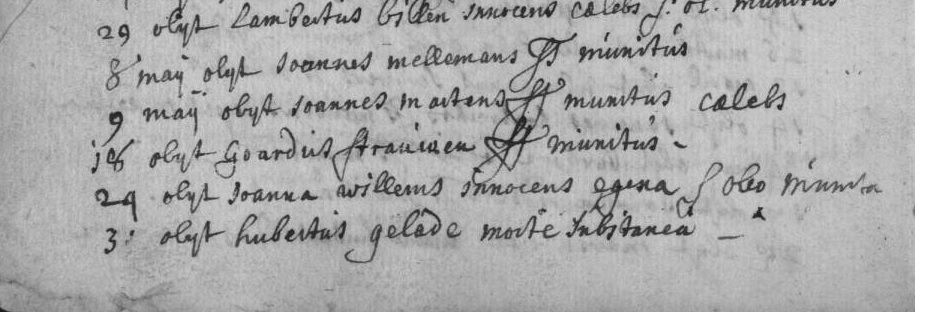 29 obijt Lambertus billen innocens cælebs s. ol. munitus
8 maij obijt Joannes mellemans SS munitus
9 maij obijt Joannes martens SS munitus cælebs
18 obijt Goardus strauven SS munitus
24 obijt Joanna willems innocens egena S oleo munita
3 obijt hubertus gelade morte subitanea